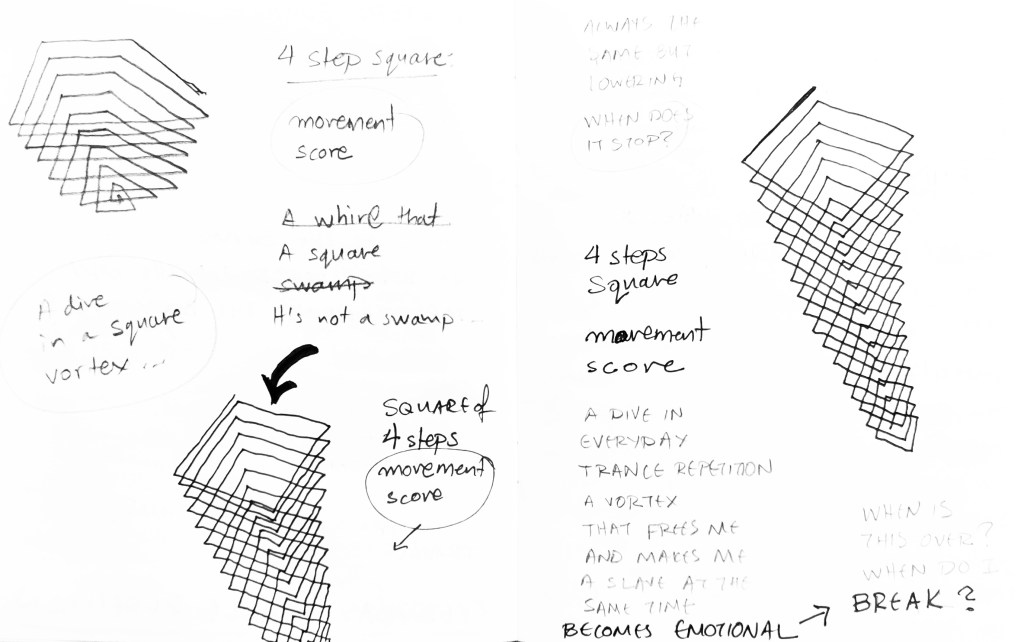 4 step square:
movement
score
A whirl that
A square
swamp
It's not a swamp ...
A dive
in a square
vortex ...
SQUARE of
4 steps
movement
score
ALWAYS THE
SAME BUT
LOWERING
WHEN DOES
IT STOP?
4 steps
Square
movement
score
A DIVE IN
EVERYDAY
TRANCE REPETITION
A VORTEX
THAT FREES ME
AND MAKES ME
A SLAVE AT THE
SAME TIME
BECOMES EMOTIONAL
WHEN IS
THIS OVER?
WHEN DO I
BREAK?